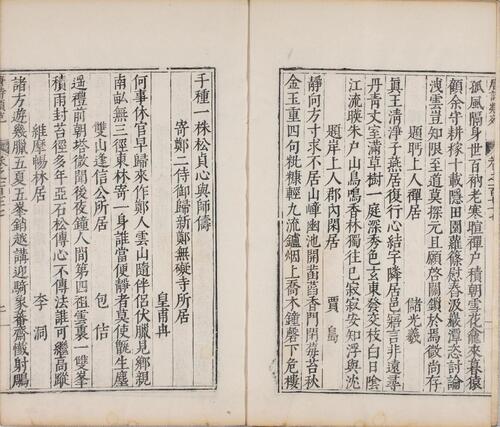 孤風隔身世百衲老寒暄禪戶積朝花籠來暮猿
顧余守耕稼十載隱田園蘿篠慰舂汲巖潭恣討論
洩雲豈知限至道莫探元且願啓關鎖於焉微尚存
題聃上人禪居
儲光羲
眞王清淨子燕居復行心結宇隣居邑寤言非遠尋
丹青文室滿草樹一庭深秀色玄東發交枝白日陰
江流曠朱戶山鳥鳴香林獨往已寂寂安知浮與沈
題岸上人郡內閑居
賈島
靜向方寸求不居山嶂幽池開菡萏香門閉莓苔秋
金玉重四句粃糠輕九流鑪烟上喬木鐘磬下危樓
千種一株松貞心與師儔
寄鄭二侍御歸新鄭無礙寺所居
皇甫冉
何事休官早歸來作鄭人雲山隨伴侶伏臘見鄉親
南畝無三徑東林寄一身誰當便靜者莫使甑生塵
雙山逢信公所居
包佶
遙禮前朝塔微聞後夜鐘人間第四祖雲裏一雙峯
積雨封苔徑多年亞石松傳心不傳法誰可繼高蹤
維摩暢林居
李洞
諸方遊幾臘五夏五峯銷越講迎騎象蕃齋懺射鵰